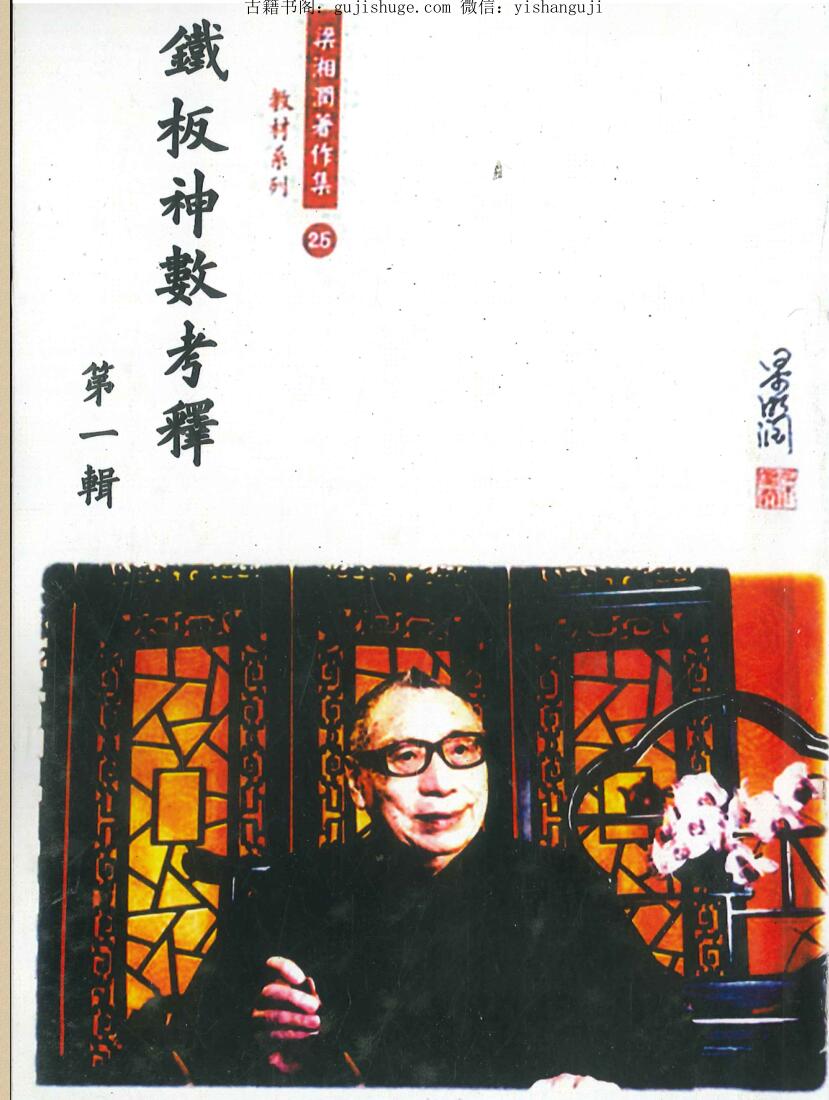 古籍书阁：gujishuge.com 微信：yishanguji
梁湘潤著作集
25
教材系列
鐵板神數考釋
第一輯
梁湘潤